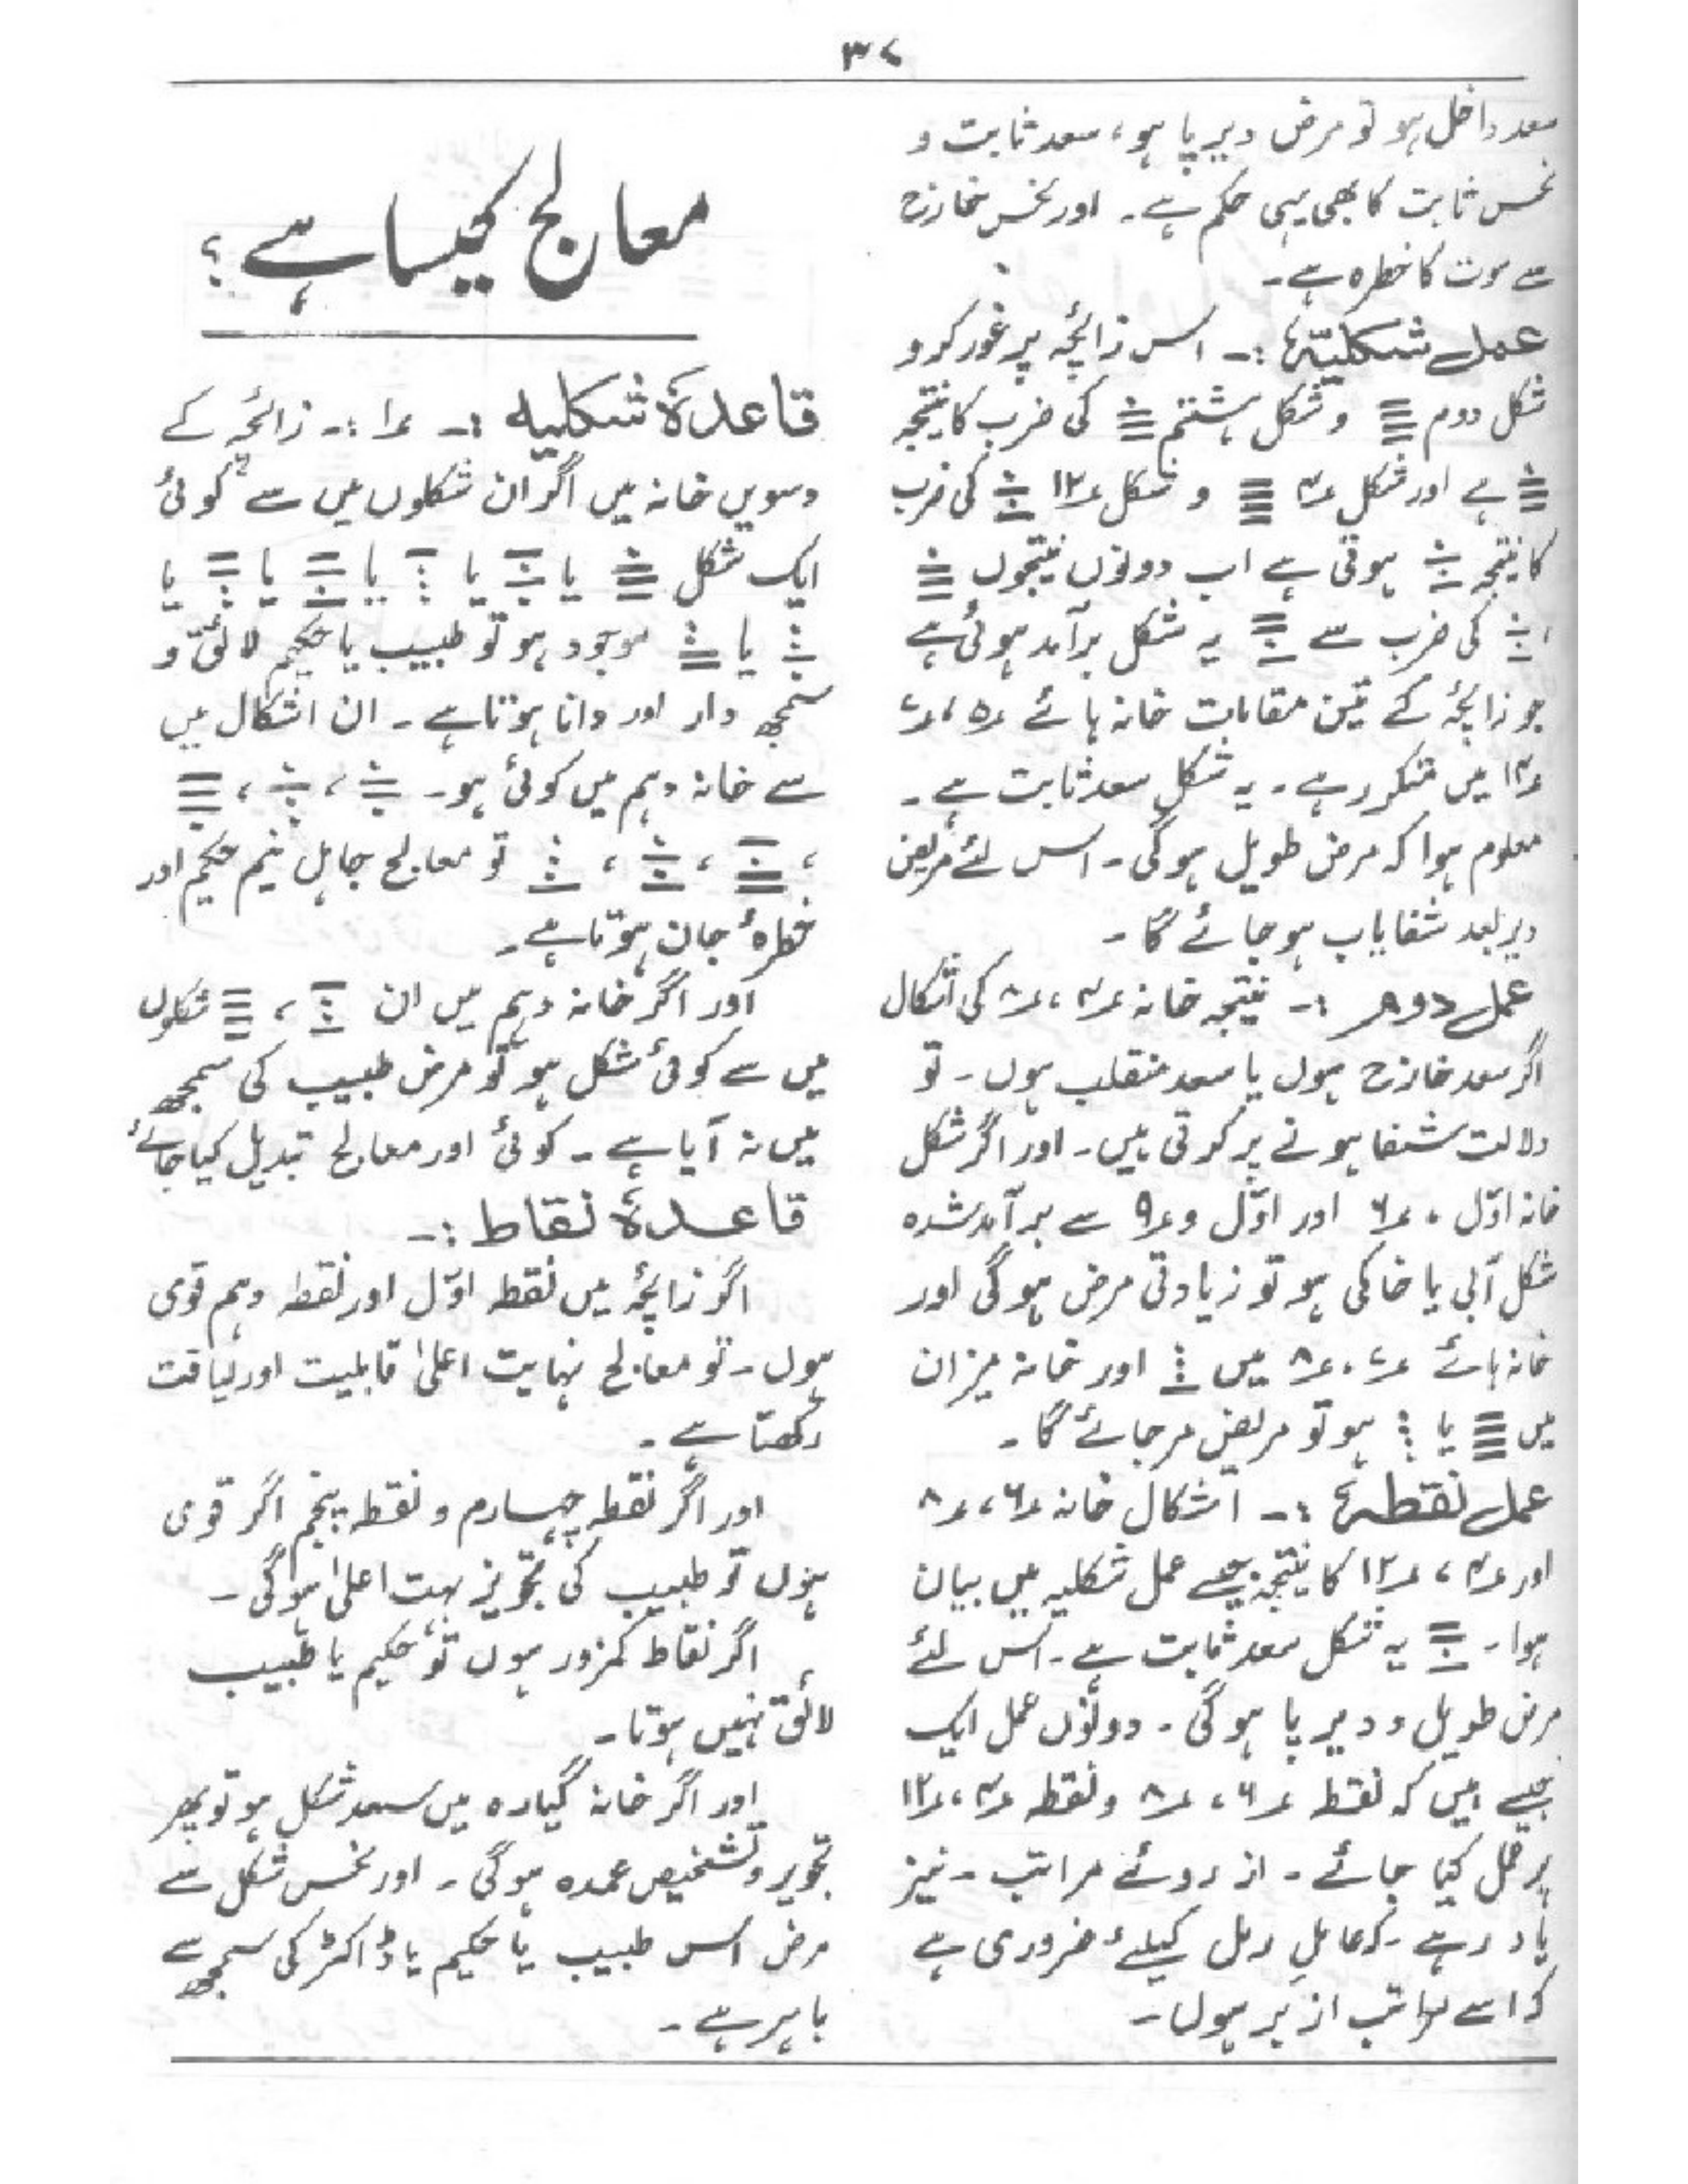 ۳۷
سعد داخل ہو تو مرض دیر پا ہو، سعد ثابت و
نحس ثابت کا بھی یہی حکم ہے۔ اور نحس خارج
سے موت کا خطرہ ہے۔
عمل شکلیہ :۔ اس زائچہ پر غور کرو
شکل دوم و شکل ہشتم کی ضرب کا نتیجہ
ہے اور شکل ۴ و شکل ۱۲ کی ضرب
کا نتیجہ ہوتی ہے اب دونوں نتیجوں
، کی ضرب سے یہ شکل برآمد ہوئی ہے
جو زائچہ کے تین مقامات خانہ ہائے ۵، ۷
میں متکرر ہے۔ یہ شکل سعد ثابت ہے۔
معلوم ہوا کہ مرض طویل ہوگی۔ اس لئے مریض
دیر بعد شفایاب ہو جائے گا۔
عمل دوم :۔ نتیجہ خانہ ۴، ۸ کی اشکال
اگر سعد خارج ہوں یا سعد منقلب ہوں۔ تو
دلالت شفا ہونے پر کرتی ہیں۔ اور اگر شکل
خانہ اوّل ، ۶ اور اوّل و ۹ سے برآمد شدہ
شکل آبی یا خاکی ہو تو زیادتی مرض ہوگی اور
خانہ ہائے ۷، ۸ میں اور خانہ میزان
میں یا ہو تو مریض مر جائے گا۔
عمل نقطہ :۔ اشکال خانہ ۶، ۸
اور ۴، ۱۲ کا نتیجہ جیسے عمل شکلیہ میں بیان
ہوا۔ یہ شکل سعد ثابت ہے۔ اس لئے
مرض طویل و دیر پا ہوگی۔ دونوں عمل ایک
جیسے ہیں کہ نقطہ ۶، ۸ و نقطہ ۴، ۱۲
پر عمل کیا جائے۔ از روئے مراتب۔ نیز
یاد رہے۔ کہ عامل رمل کیلئے ضروری ہے
کہ اسے مراتب ازبر ہوں۔
معالج کیسا ہے ؟
قاعدۂ شکلیہ :۔ ۱ :۔ زائچہ کے
دسویں خانہ میں اگر ان شکلوں میں سے کوئی
ایک شکل یا یا یا یا یا
یا موجود ہو تو طبیب یا حکیم لائق و
سمجھ دار اور دانا ہوتا ہے۔ ان اشکال میں
سے خانہ دہم میں کوئی ہو۔ ، ،
، ، ، تو معالج جاہل نیم حکیم اور
خطرۂ جان ہوتا ہے۔
اور اگر خانہ دہم میں ان ، شکلوں
میں سے کوئی شکل ہو تو مرض طبیب کی سمجھ
میں نہ آیا ہے۔ کوئی اور معالج تبدیل کیا جائے
قاعدۂ نقاط :۔
اگر زائچہ میں نقطہ اوّل اور نقطہ دہم قوی
ہوں۔ تو معالج نہایت اعلیٰ قابلیت اور لیاقت
رکھتا ہے۔
اور اگر نقطہ چہارم و نقطہ پنجم اگر قوی
ہوں تو طبیب کی تجویز بہت اعلیٰ ہوگی۔
اگر نقاط کمزور ہوں تو حکیم یا طبیب
لائق نہیں ہوتا۔
اور اگر خانہ گیارہ میں سعد شکل ہو تو پھر
تجویز و تشخیص عمدہ ہوگی۔ اور نحس شکل سے
مرض اس طبیب یا حکیم یا ڈاکٹر کی سمجھ سے
باہر ہے۔